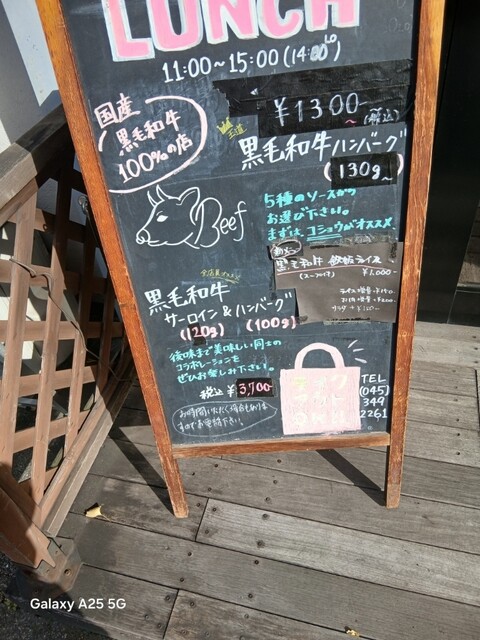 LUNCH
11:00~15:00 (14:00LO)
¥1300~
(税込)
国産
黒毛和牛
100%の店
王道
黒毛和牛ハンバーグ
(130g~)
Beef
5種のソースから
お選び下さい。
まずは、コショウがオススメ
黒毛和牛 鉄板ライス
(スープ付)
¥1,000-
黒毛和牛
サーロイン & ハンバーグ
(120g) (100g)
後味まで美味しい同士の
コラボレーションを
ぜひお楽しみ下さい。
税込 ¥3,700-
お時間いただく場合もあり
ますのでお電話下さい。
テイク
アウト
TEL
(045)
349
2261
Galaxy A25 5G